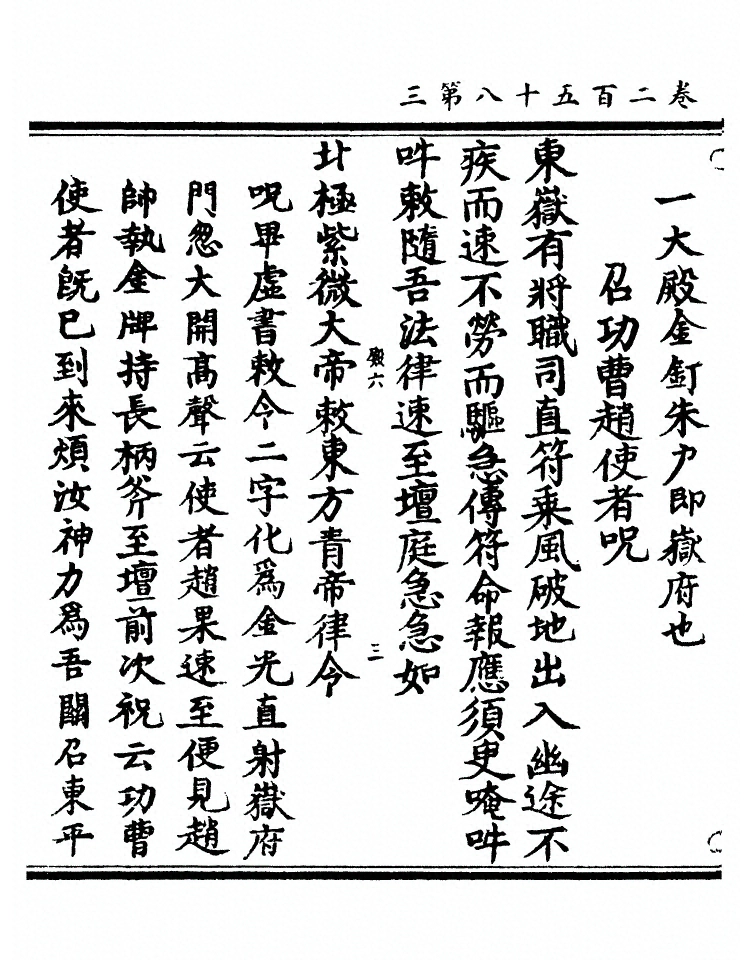 卷二百五十八第三
一大殿金釘朱户即嶽府也
召功曹趙使者呪
東嶽有將職司直符乗風破地出入幽途不
疾而速不勞而驅急傳符命報應須臾唵吽
吽敕隨吾法律速至壇庭急急如
北極紫微大帝敕東方青帝律令
殿六
三
呪畢虛書敕令二字化爲金光直射嶽府
門忽大開高聲云使者趙果速至便見趙
帥執金牌持長柄斧至壇前次祝云功曹
使者旣已到來煩汝神力爲吾關召東平